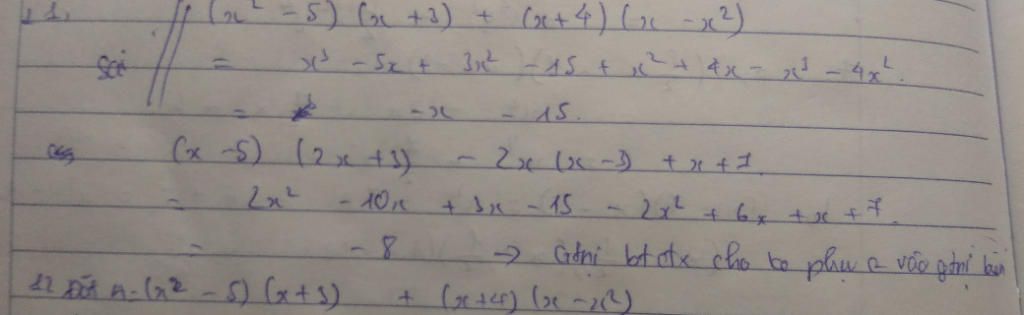 11. (x² - 5)(x + 3) + (x+4)(x - x²)
Sai = x³ - 5x + 3x² - 15 + x² + 4x - x³ - 4x².
= -x - 15.
(x - 5)(2x + 3) - 2x(x - 3) + x + 7.
= 2x² - 10x + 3x - 15 - 2x² + 6x + x + 7.
= - 8 → Gtrị bt đtx cho ko phụ vào gtrị
12 Đặt A = (x² - 5)(x + 3) + (x+4)(x - x²)